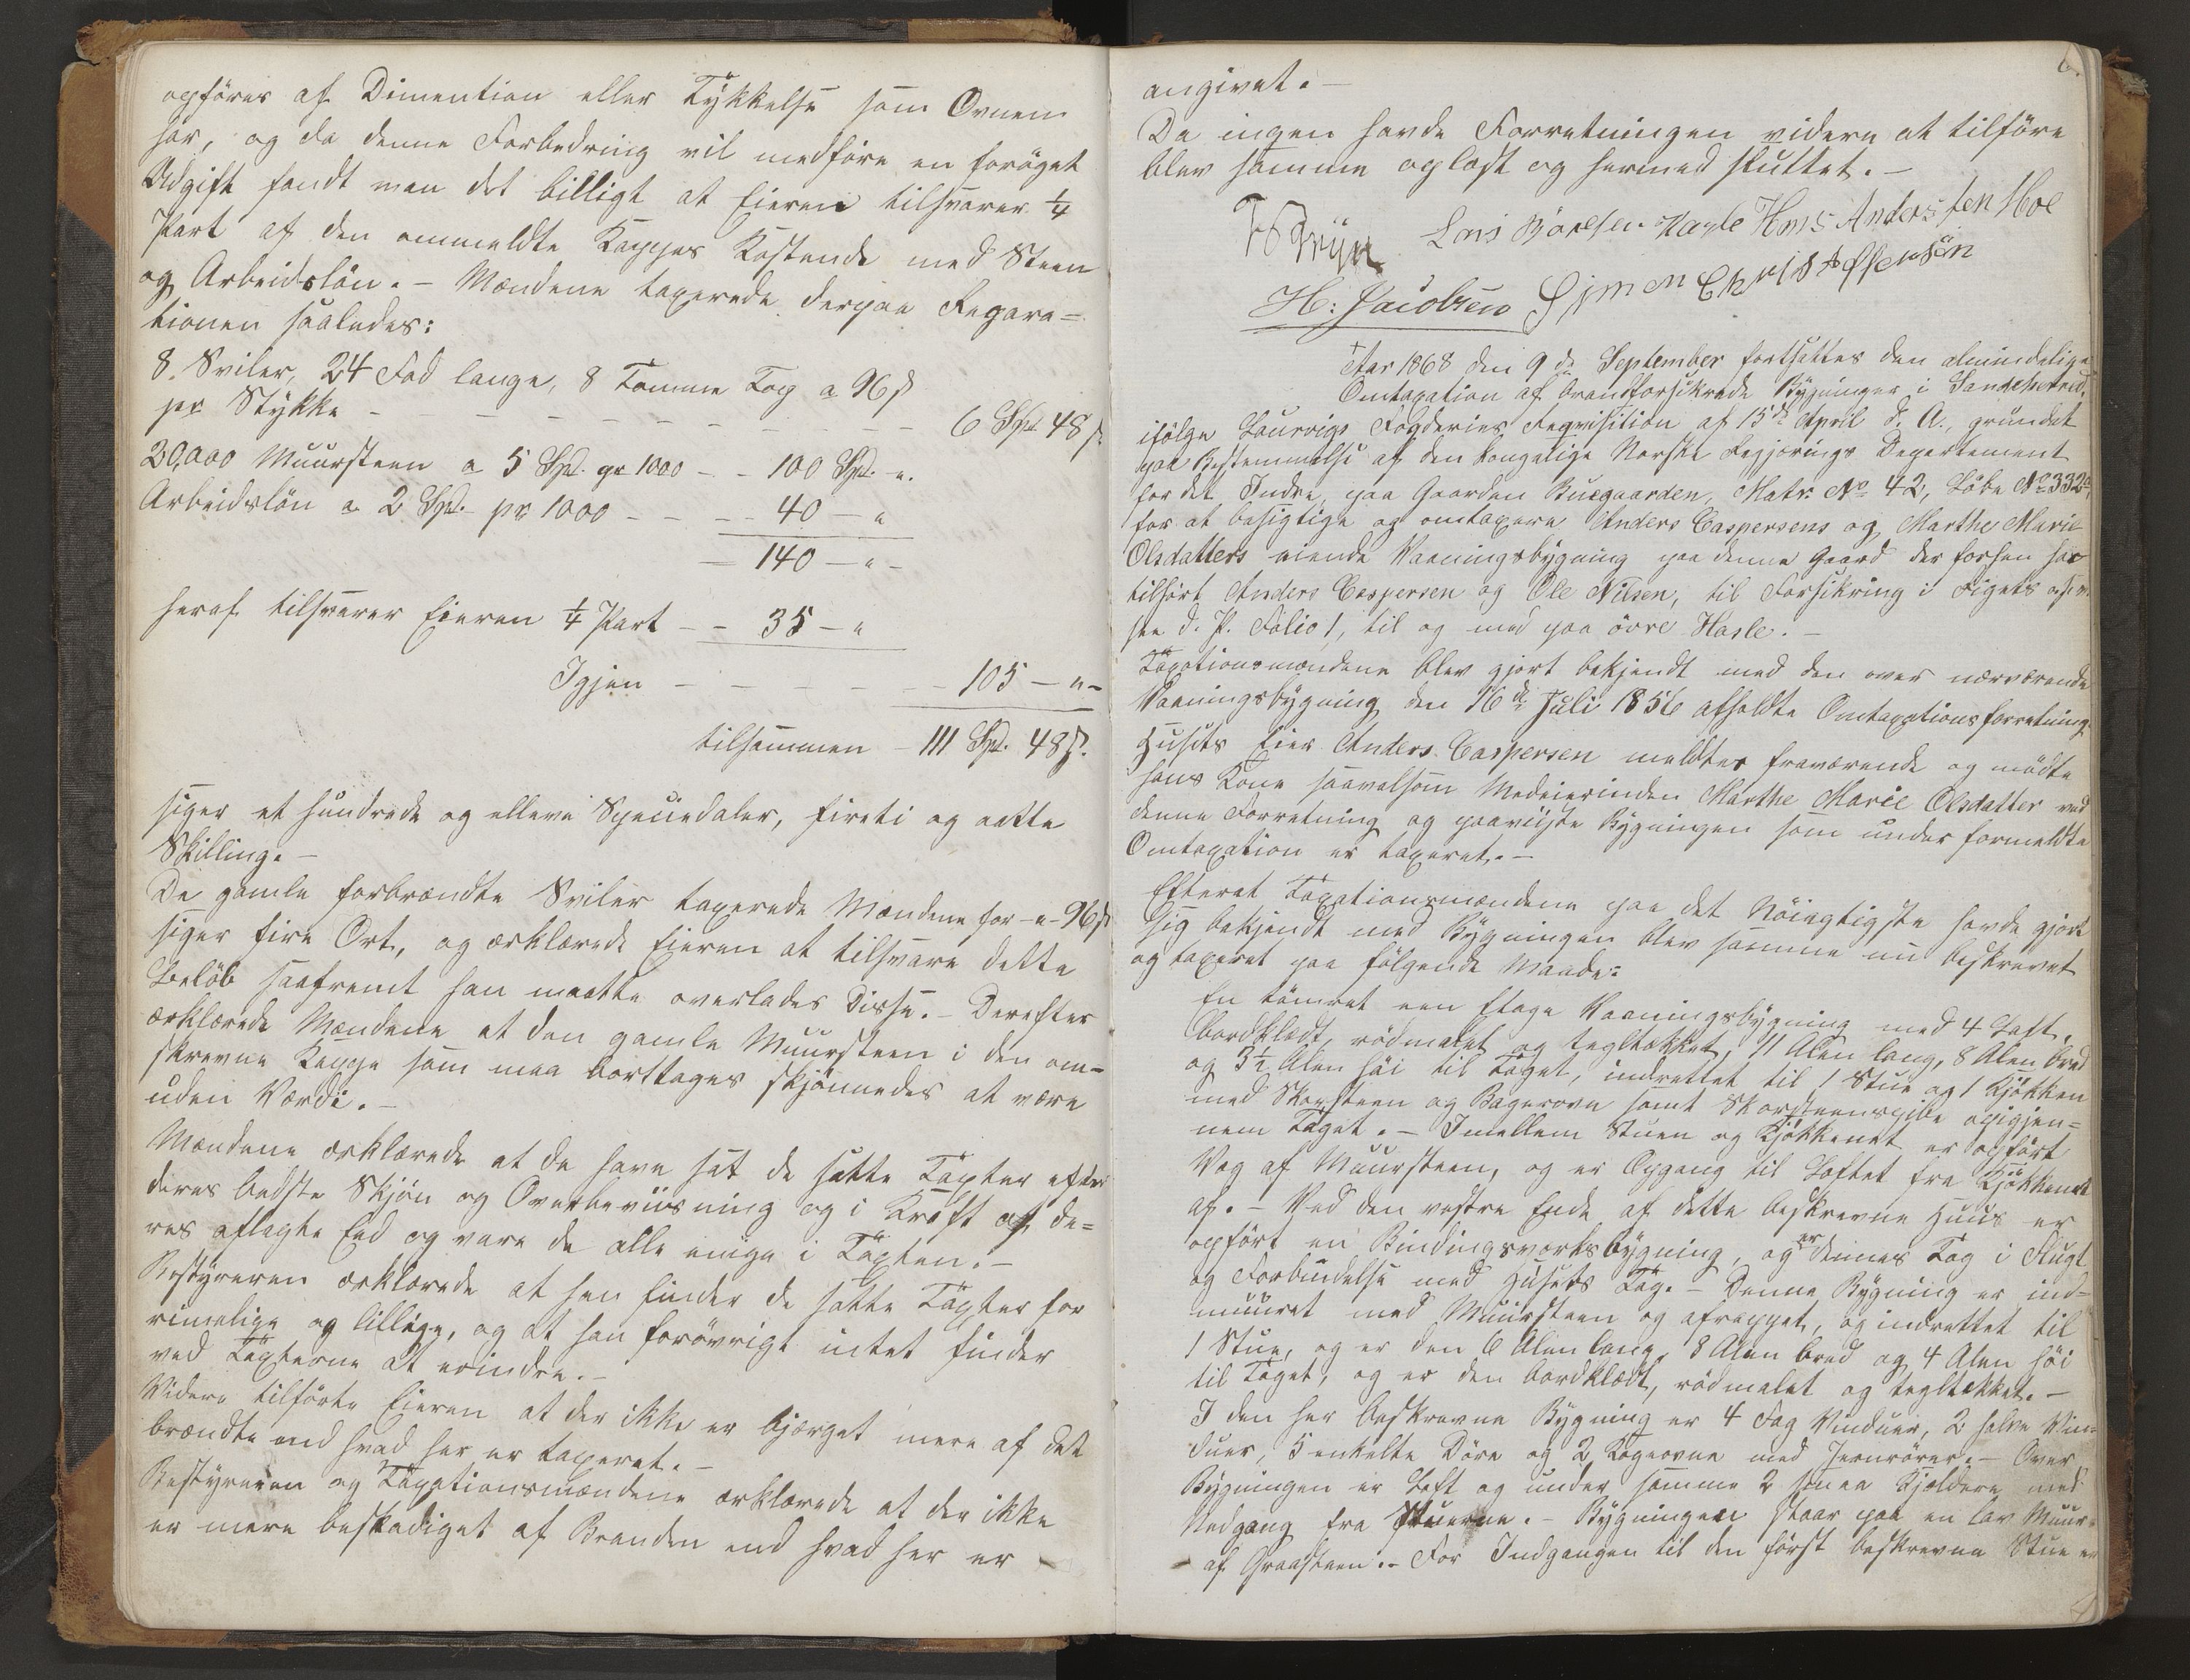 opføres af Dimention eller Tykkelse som Ovnen
har, og da denne Forbedring vil medføre en forøget
Udgift fandt man det billigt at Eieren tilsvarer 1/4
Part af den ommeldte Kappes Kostende med Steen
og Arbeidsløn. – Mændene taxerede derpaa Repara=
tionen saaledes:
8 Sviler, 24 Fod lange, 8 Tomme Top a 96 s
pr Stykke – – – – – – – – – 6 Spd. 48 s.
20,000 Muursteen a 5 Spd. pr 1000 – – 100 Spd. „.
Arbeidsløn a 2 Spd. pr 1000 – – – 40 – „
– 140 – „ –
heraf tilsvarer Eieren 1/4 Part – – 35 – „
Igjen – – – – – – 105 – „ –
tilsammen – 111 Spd. 48 s.
siger et hundrede og elleve Speciedaler, firti og aatte
Skilling. –
De gamle forbrændte Sviler taxerede Mændene for – „ – 96 s
siger fire Ort, og erklærede Eieren at tilsvare dette
Beløb saafremt han maatte overlades Disse. – Derefter
erklærede Mændene at den gamle Muursteen i den om=
skrevne Kappe som maa borttages skjønnedes at være
uden Værdi. –
Mændene erklærede at de have sat de satte Taxter efter
deres bedste Skjøn og Overbeviisning og i Kraft af de=
res aflagte Eed og vare de alle enige i Taxten. –
Bestyreren erklærede at han finder de satte Taxter for
rimelige og billige, og at han forøvrigt intet finder
ved Taxterne at erindre. –
Videre tilførte Eieren at der ikke er bjærget mere af det
brændte end hvad her er taxeret. –
Bestyreren og Taxationsmændene erklærede at der ikke
er mere beskadiget af Branden end hvad her er –
6.
angivet. –
Da ingen havde Forretningen videre at tilføre
blev samme oplæst og hermed sluttet. –
Lars Hans Anderssen Moe
H: Jacobsen Simen Christoffersen
Aar 1868 den 9de September fortsattes den almindelige
Omtaxation af brandforsikrede Bygninger i Sandeherred,
ifølge Laurvigs Fogderies Reqvisition af 15de April d. A., grundet
paa Bestemmelse af den kongelige Norske Regjerings Departement
for det Indre, paa Gaarden Buegaarden, Matr. No 42, Løbe No 332a,
for at besigtige og omtaxere Anders Caspersens og Marthe Marie
Olsdatters eiende Vaaningsbygning paa denne Gaard der forhen har
tilhørt Anders Caspersen og Ole Nilsen, til Forsikring i Rigets
see d. P. Folio 1, til og med paa øvre Hasle. –
Taxationsmændene blev gjort bekjendt med den over nærværende
Vaaningsbygning den 16de Juli 1856 afholdte Omtaxationsforretning.
Husets Eier Anders Caspersen meldtes fraværende og mødte
hans Kone saavelsom Medeierinden Marthe Marie Olsdatter ved
denne Forretning og paaviiste Bygningen som under formeldte
Omtaxation er taxeret. –
Efterat Taxationsmændene paa det Nøiagtigste havde gjort
sig bekjendt med Bygningen blev samme nu beskrevet
og taxeret paa følgende Maade:
En tømret een Etage Vaaningsbygning med 4 Laft,
bordklædt, rødmalet og tegltækket, 11 Alen lang, 8 Alen bred
og 3½ Alen høi til Taget, indrettet til 1 Stue og 1 Kjøkken
med Skorsteen og Bagerovn samt Skorsteenspibe opigjen=
nem Taget. – Imellem Stuen og Kjøkkenet er opført
Væg af Muursteen, og er Opgang til Loftet fra Kjøkkenet
af. – Ved den vestre Ende af dette beskrevne Huus er
opført en Bindingsværksbygning, og er dennes Tag i Flugt
og Forbindelse med Husets Tag. – Denne Bygning er ind=
muuret med Muursteen og afrappet, og indrettet til
1 Stue, og er den 6 Alen lang, 8 Alen bred og 4 Alen høi
til Taget, og er den bordklædt, rødmalet og tegltækket. –
I den her beskrevne Bygning er 4 Fag Vinduer, 2 halve Vin=
duer, 5 enkelte Døre og 2 Kogeovne med Jernrører. – Over
Bygningen er Loft og under samme 2 smaa Kjældere med
Nedgang fra Stuerne. – Bygningen staar paa en lav Muur
af Graasteen. – For Indgangen til den først beskrevne Stue er